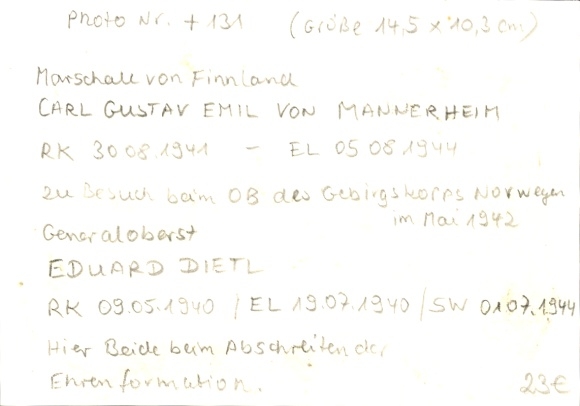 Photo Nr. + 131 (Größe 14,5 x 10,3 cm)
Marschall von Finnland
CARL GUSTAV EMIL VON MANNERHEIM
RK 30 08.1941 - EL 05 08 1944
zu Besuch beim OB des Gebirgskorps Norwegen
im Mai 1942
Generaloberst
EDUARD DIETL
RK 09.05.1940 / EL 19.07.1940 / SW 01.07.1944
Hier Beide beim Abschreiten der
Ehrenformation.
23€